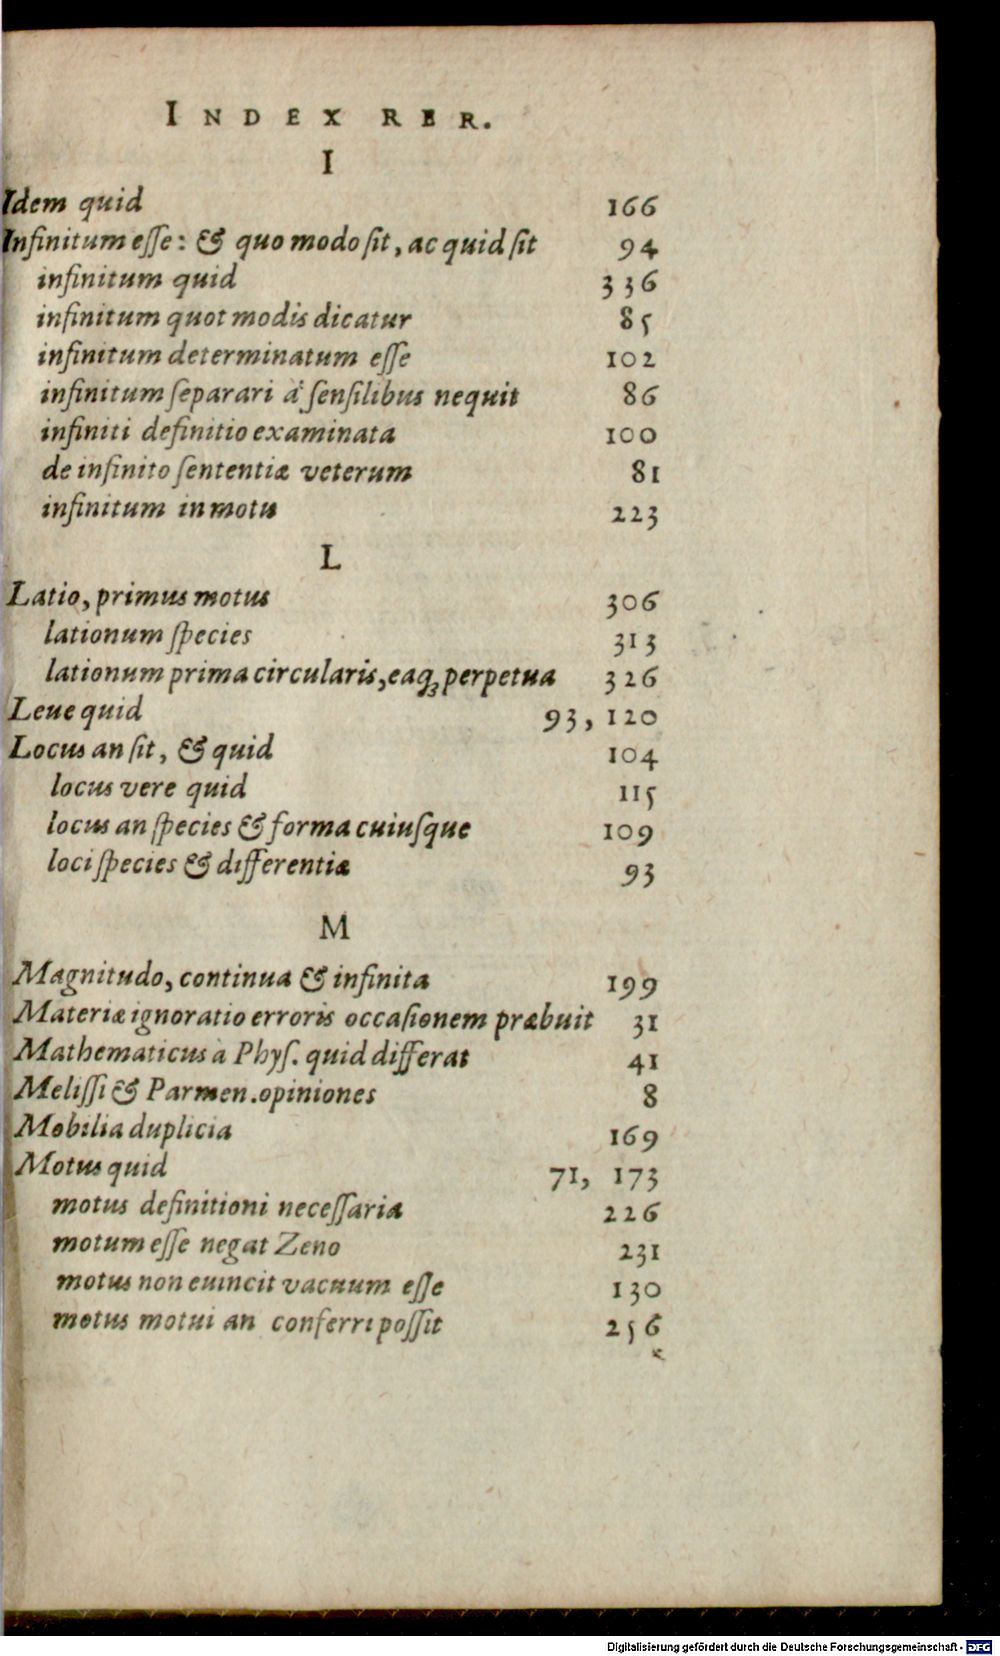 INDEX RER.
I
Idem quid 166
Infinitum eſſe: & quo modo ſit, ac quid ſit 94
infinitum quid 336
infinitum quot modis dicatur 85
infinitum determinatum eſſe 102
infinitum ſeparari à ſenſilibus nequit 86
infiniti definitio examinata 100
de infinito ſententiæ veterum 81
infinitum in motu 223
L
Latio, primus motus 306
lationum ſpecies 313
lationum prima circularis, eaq; perpetua 326
Leue quid 93, 120
Locus an ſit, & quid 104
locus vere quid 115
locus an ſpecies & forma cuiuſque 109
loci ſpecies & differentiæ 93
M
Magnitudo, continua & infinita 199
Materiæ ignoratio erroris occaſionem præbuit 31
Mathematicus à Phyſ. quid differat 41
Meliſſi & Parmen. opiniones 8
Mobilia duplicia 169
Motus quid 71, 173
motus definitioni neceſſaria 226
motum eſſe negat Zeno 231
motus non euincit vacuum eſſe 130
motus motui an conferri poſſit 256
Digitalisierung gefördert durch die Deutsche Forschungsgemeinschaft - DFG